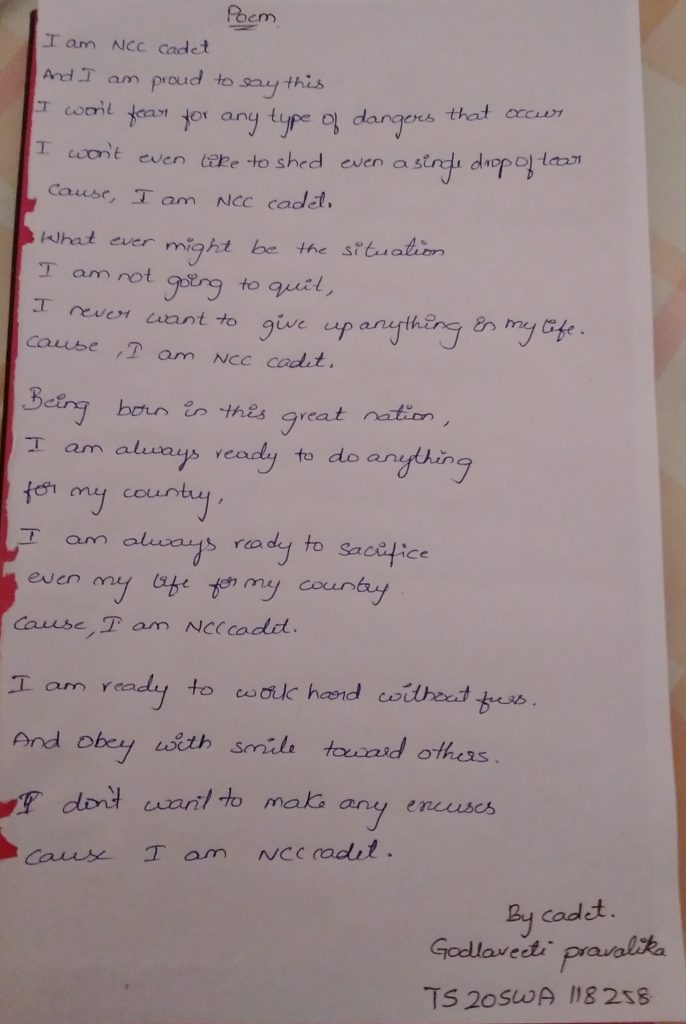 Poem
I am NCC cadet
And I am proud to say this
I won't fear for any type of dangers that occur
I won't even like to shed even a single drop of tear
Cause, I am NCC cadet.
What ever might be the situation
I am not going to quit,
I never want to give up anything in my life.
Cause, I am NCC cadet.
Being born in this great nation,
I am always ready to do anything
for my country,
I am always ready to sacrifice
even my life for my country.
Cause, I am NCC cadet.
I am ready to work hard without fuss.
And Obey with smile toward others.
I don't want to make any excuses
Cause I am NCC cadet.
By cadet.
Godlaveeti pravalika
TS20SWA 118258